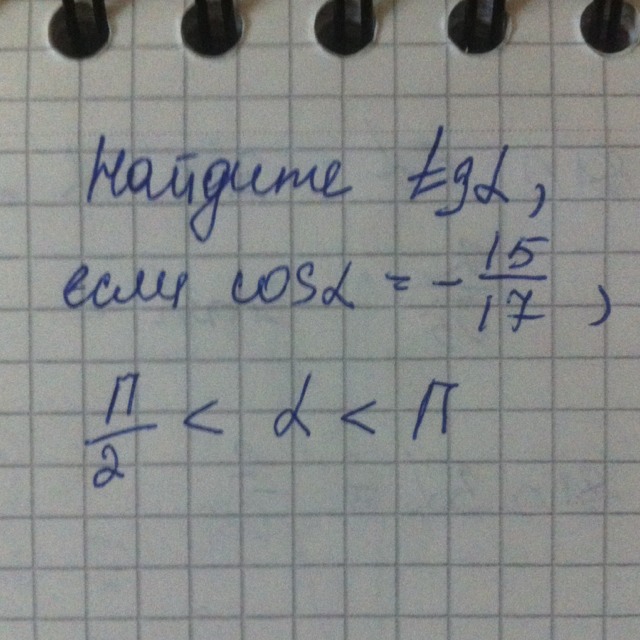 Найдите tgα,
если cosα = - 15/17,
π/2 < α < π